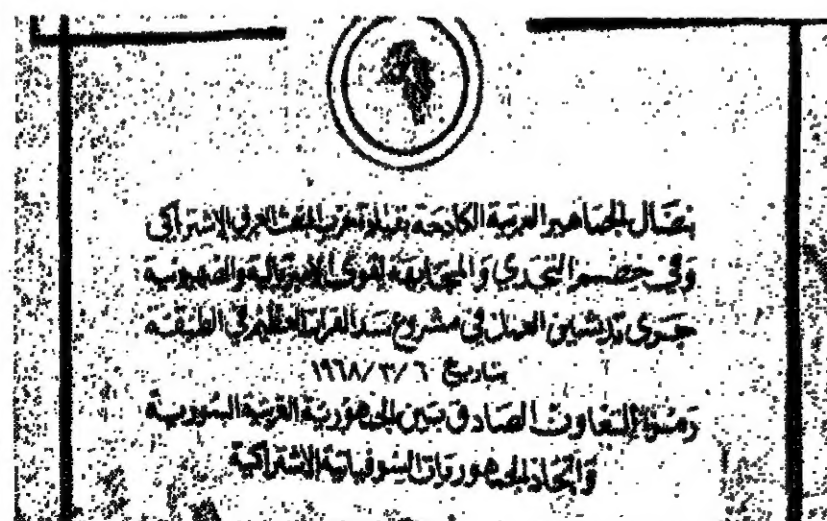 بنضال الجماهير العربية الكادحة بقيادة حزب البعث العربي الاشتراكي
وفي خضم التحدي والمجابهة لقوى الامبريالية والصهيونية
جرى تدشين العمل في مشروع سد الفرات العظيم في الطبقة
بتاريخ ٦ /٣ /١٩٦٨
رمز التعاون الصادق بين الجمهورية العربية السورية
واتحاد الجمهوريات السوفياتية الاشتراكية